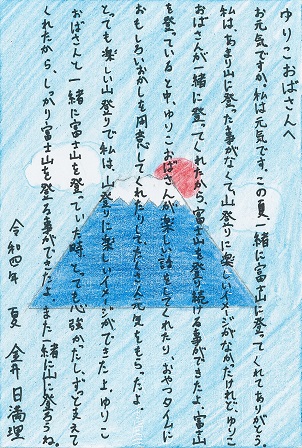 ゆりこおばさんへ
お元気ですか。私は元気です。この夏、一緒に富士山に登ってくれてありがとう。
私はあまり山に登った事がなくて、山登りに楽しいイメージがなかったけれど、ゆりこ
おばさんが一緒に登ってくれたから、富士山を登り続ける事ができたよ。富士山
を登っていると中、ゆりこおばさんが楽しい話をしてくれたり、おやつタイムに
おもしろいおかしを用意してくれたりして、たくさん元気をもらったよ。
とっても楽しい山登りで、私は、山登りに楽しいイメージができたよ。ゆりこ
おばさんと一緒に富士山を登っていた時、とっても心強かったし、ずっと支えて
くれたから、しっかり富士山を登る事ができたよ。また一緒に山に登ろうね。
令和四年 夏 金井日満理